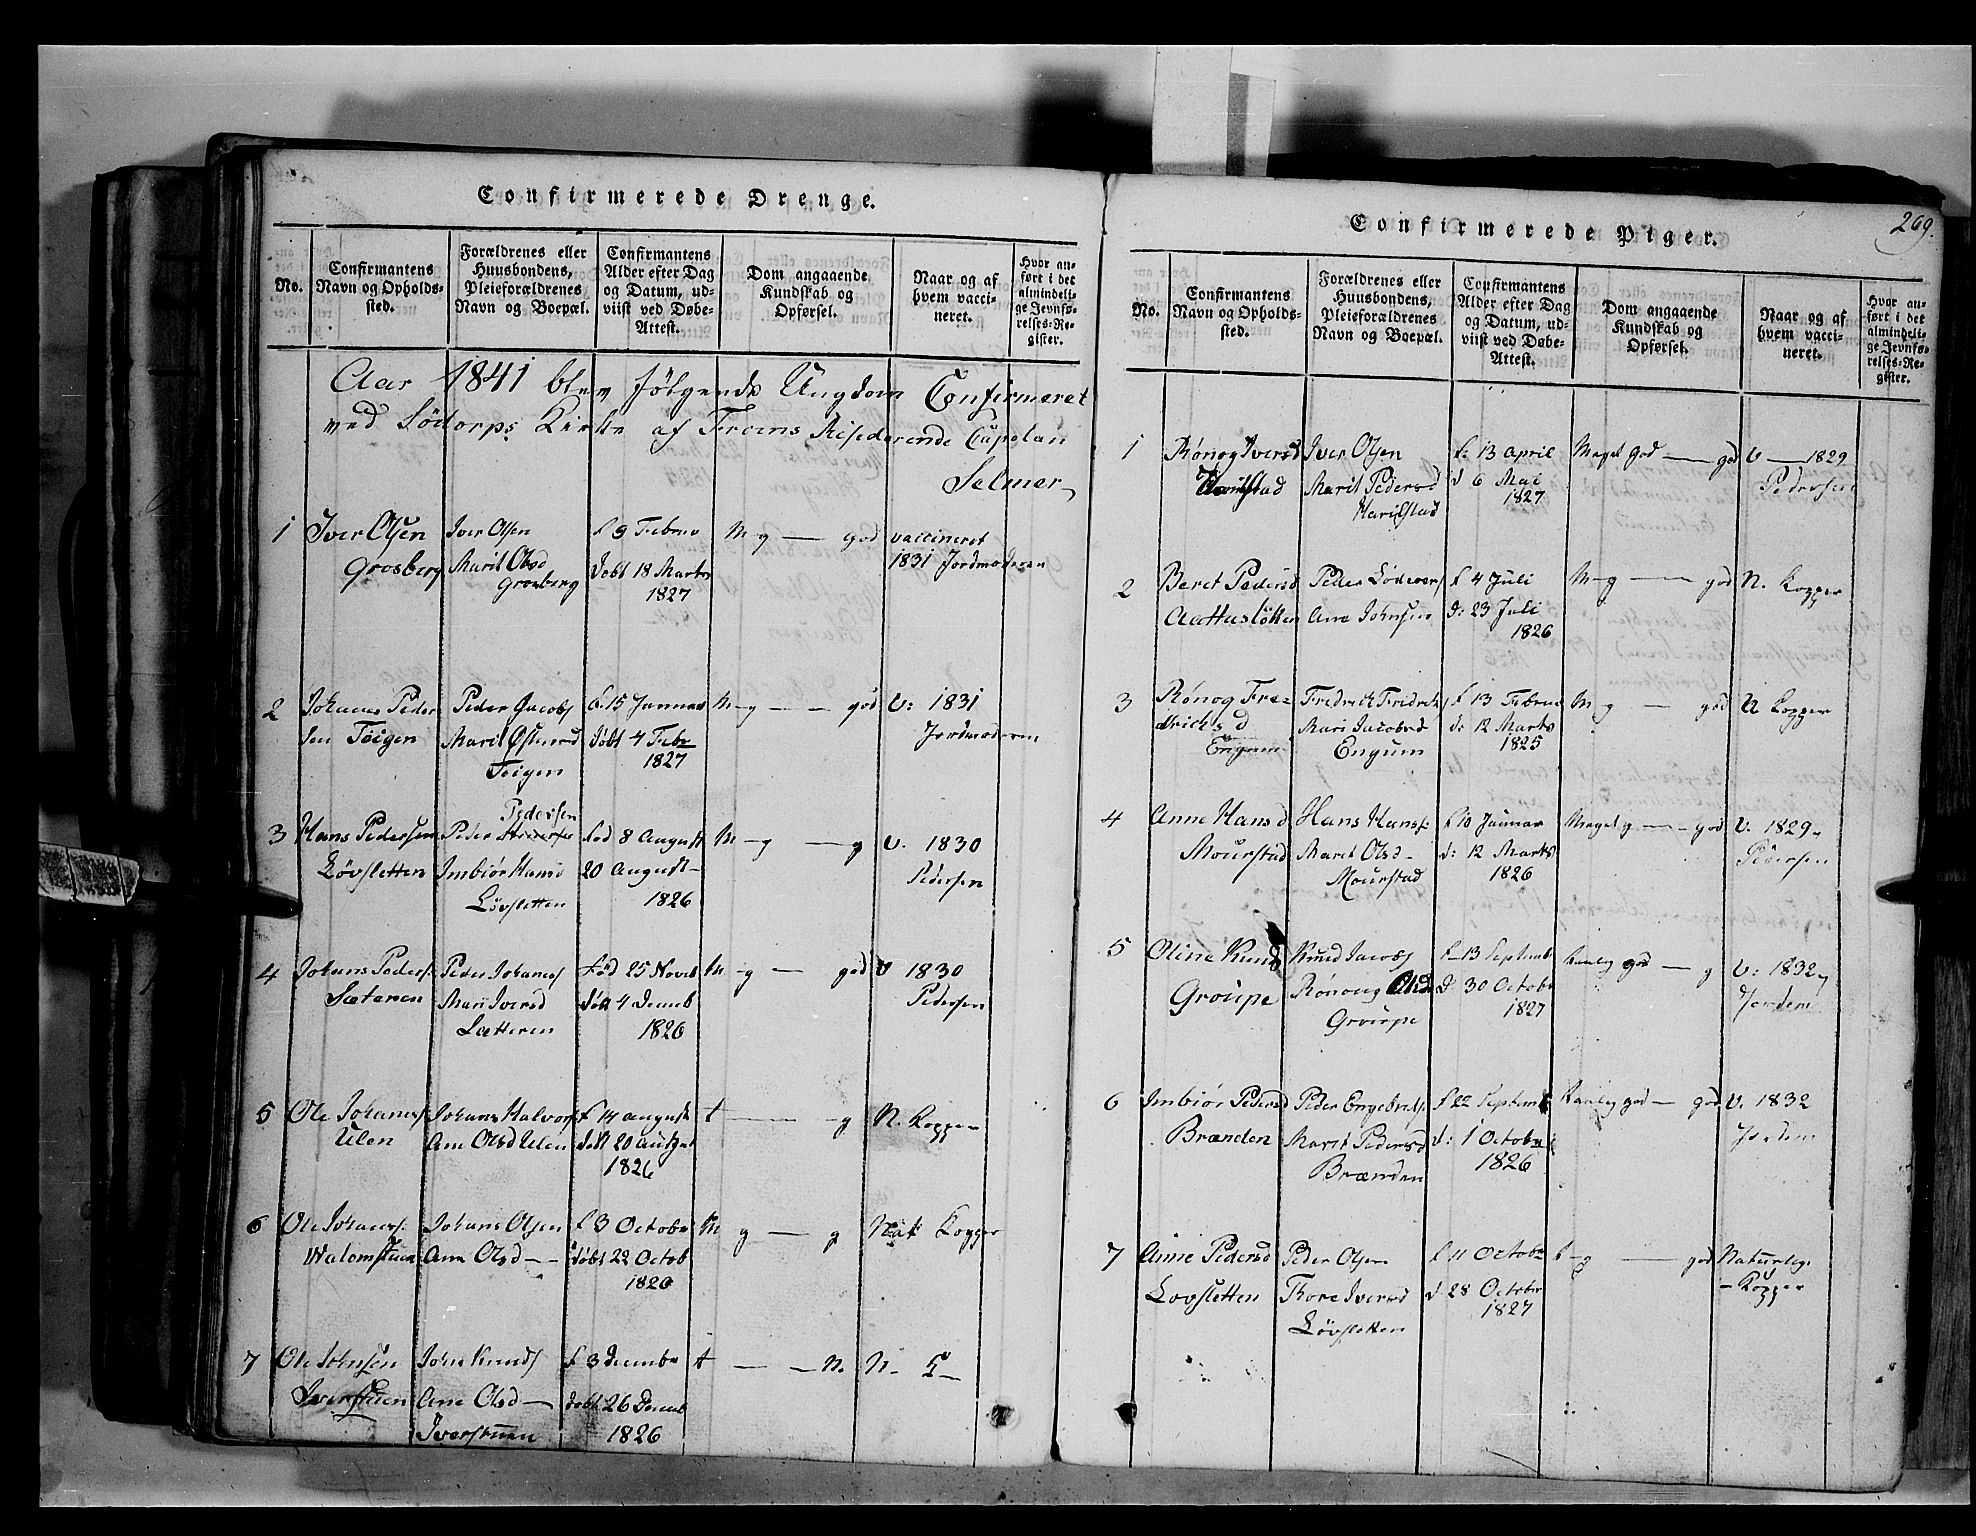 Confirmerede Drenge.
No.
Confirmantens
Navn og Opholds-
sted.
Forældrenes eller
Huusbondens,
Pleieforældrenes
Navn og Boepæl.
Confirmantens
Alder efter Dag
og Datum, ud-
viist ved Døbe-
Attest.
Dom angaaende
Kundskab og
Opførsel.
Naar og af
hvem vacci-
neret.
Hvor an-
ført i det
almindeli-
ge Jevnfø-
relses-Re-
gister.
Aar 1841 blev følgende Ungdom Confirmeret
ved Sødorps Kirke af Froens Residerende Capelan
Selmer
1
Iver Olsen
Grosberg
Iver Olsen
Marit Olsd
Grosberg
f 9 Februar
døbt 18 Marts
1827
M-g — god
vaccineret
1831 Jordmoderen
2
Johanes Peder
sen Tøigen
Peder Jacobs
Marit
Teigen
f. 15 Januar
døbt 4 Febr
1827
M-g — god
V: 1831
Jordmoderen
3
Hans Pedersen
Løvsletten
Pedersen
Peder
Imbiør Hansd
Løvsletten
fød 8 August
20 August
1826
M-g — g
V. 1830
Pedersen
4
Johans Peders.
Sæteren
Peder Johanes
Mari Iversd
Sætteren
fød 25 Noveb
døbt 4 Decemb
1826
M-g — god
V 1830
Pedersen
5
Ole Johanes
Ulen
Johans Halvors
Ane Olsd Ulen
f 14 august
døbt 20 august
1826
t — g
N. Kopper
6
Ole Johans.
Johans Olsen
Ane Olsd —
f 3 Octobr
døbt 22 Octob
1826
M g — g
Nat Kopper
7
Ole Johnsen
Iverstuen
John Knuds
Ane Olsd —
Iverstuen
f 3 December
døbt 26 Decemb
1826
t — N.
N. K —
Confirmerede Piger.
269.
No.
Confirmantens
Navn og Opholds-
sted.
Forældrenes eller
Huusbondens,
Pleieforældrenes
Navn og Boepæl.
Confirmantens
Alder efter Dag
og Datum, ud-
viist ved Døbe-
Attest.
Dom angaaende
Kundskab og
Opførsel.
Naar og af
hvem vacci-
neret.
Hvor an-
ført i det
almindeli-
ge Jevnfø-
relses-Re-
gister.
1
Rønog Iversd
Iver Olsen
Marit Pedersd
Harilstad
f: 13 april
d 6 Mai
1827
Meget God — god
V — 1829
Pedersen
2
Beret Pedersd
Peder
Ane Johnsen
f 4 Juli
d: 23 Juli
1826
M-g — god
N. Kopper
3
Rønog Fre-
drichsd
Engum
Fredrick Fridrik
Mari Jacobsd
Engum
f 13 Februa
d: 12 Marts
1825
M-g — god
N Kopper
4
Anne Hansd
Mourstad
Hans Hans:
Marit Olsd-
Mourstad
f 10 Januar
d: 12 Marts
1826
Meget g — god
V: 1829
Pedersen
5
Oline Knuds
Groupe
Knud Jacobs
Rønoug Olsd
Groupe
f 13 Septemb
d 30 Octobr
1827
god — g
V: 1832
6
Imbiør Pedersd
Brænden
Peder Engebrets.
Marit Pedersd
Brænden
f 22 Septemb
d: 1 Octobr
1826
god — god
V. 1832
7
Anne Pedersd
Lovsletten
Peder Olsen
Thore Iversd
Løvsletten
f 11 Octobr
d 28 Octobr
1827
t-g — god
Naturlige
- Kopper